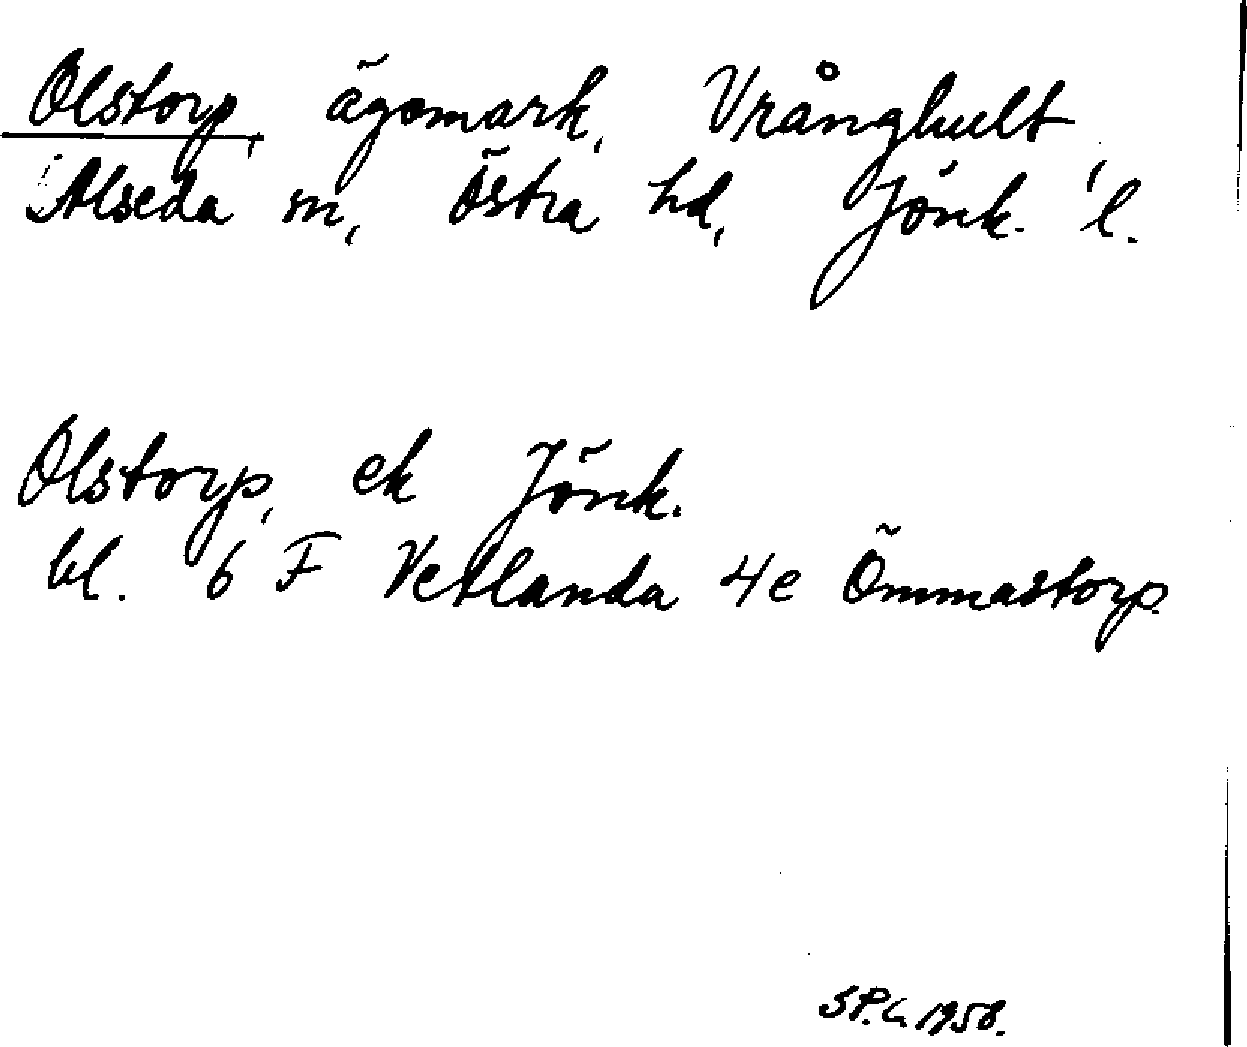 Olstorp, ägomark, Vrånghult,
Alseda sn, Östra hd, Jönk. l.
Olstorp, ek Jönk.
bl. 6 F Vetlanda 4e Ömmastorp.
1958.